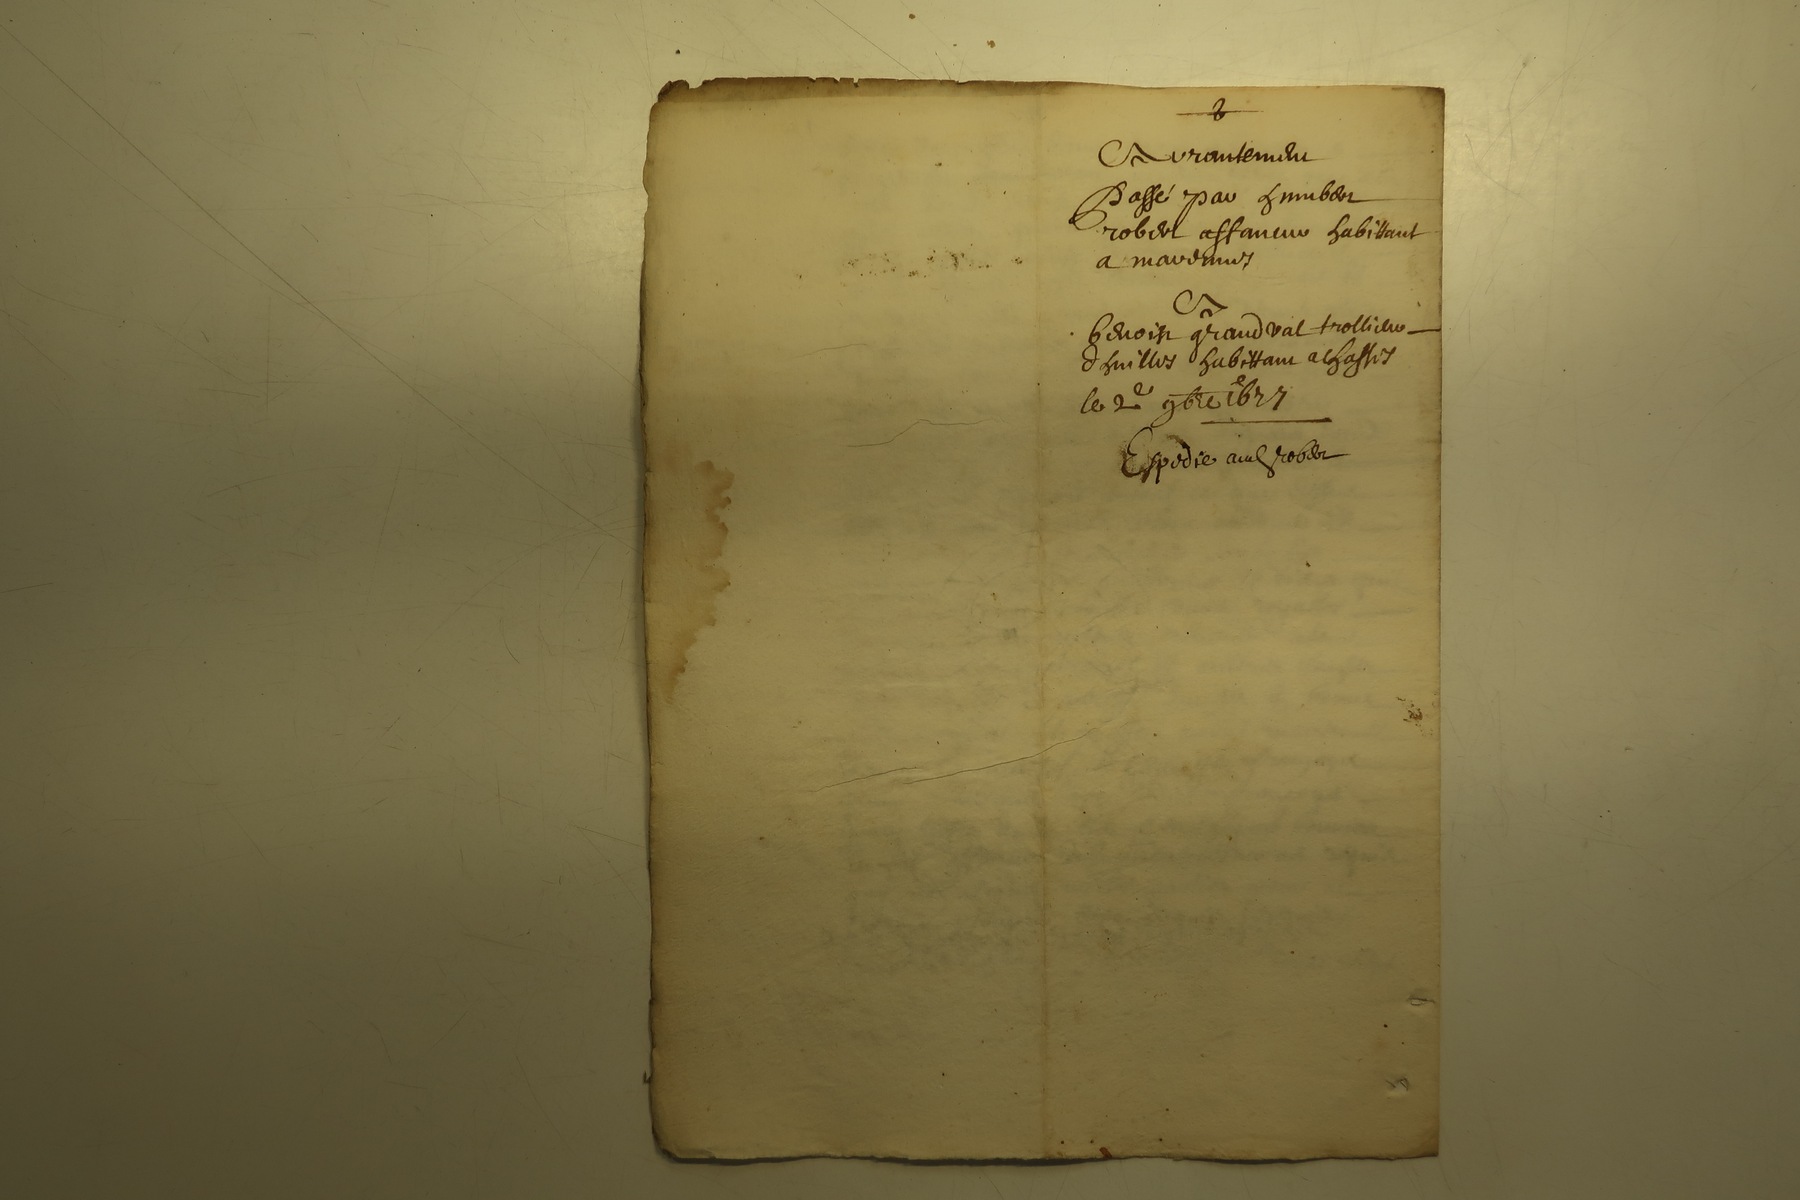 Arrantement
Passé par humbert
robert affaneur habittant
a marennes
A
benoist grandval trollieur
dhuilles habittant a chasses
le 2e 9bre 1677
Expedie aud robert